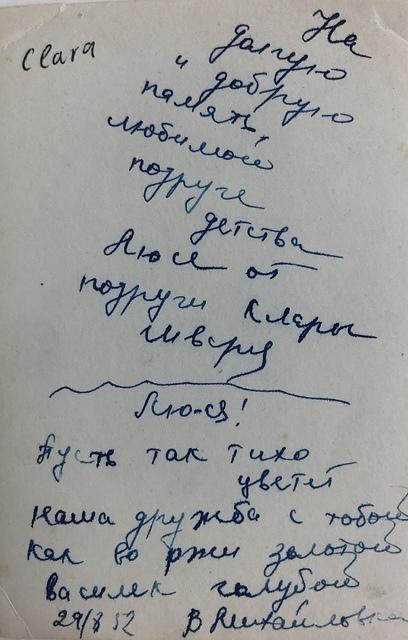 Clara
На
долгую
и добрую
память,
любимой
подруге
детства
Люсе от
подруги Клары
Шварц
Лю-ся!
Пусть так тихо
цветёт
наша дружба с тобой
как во ржи золотой
василек голубой
В Михайловка